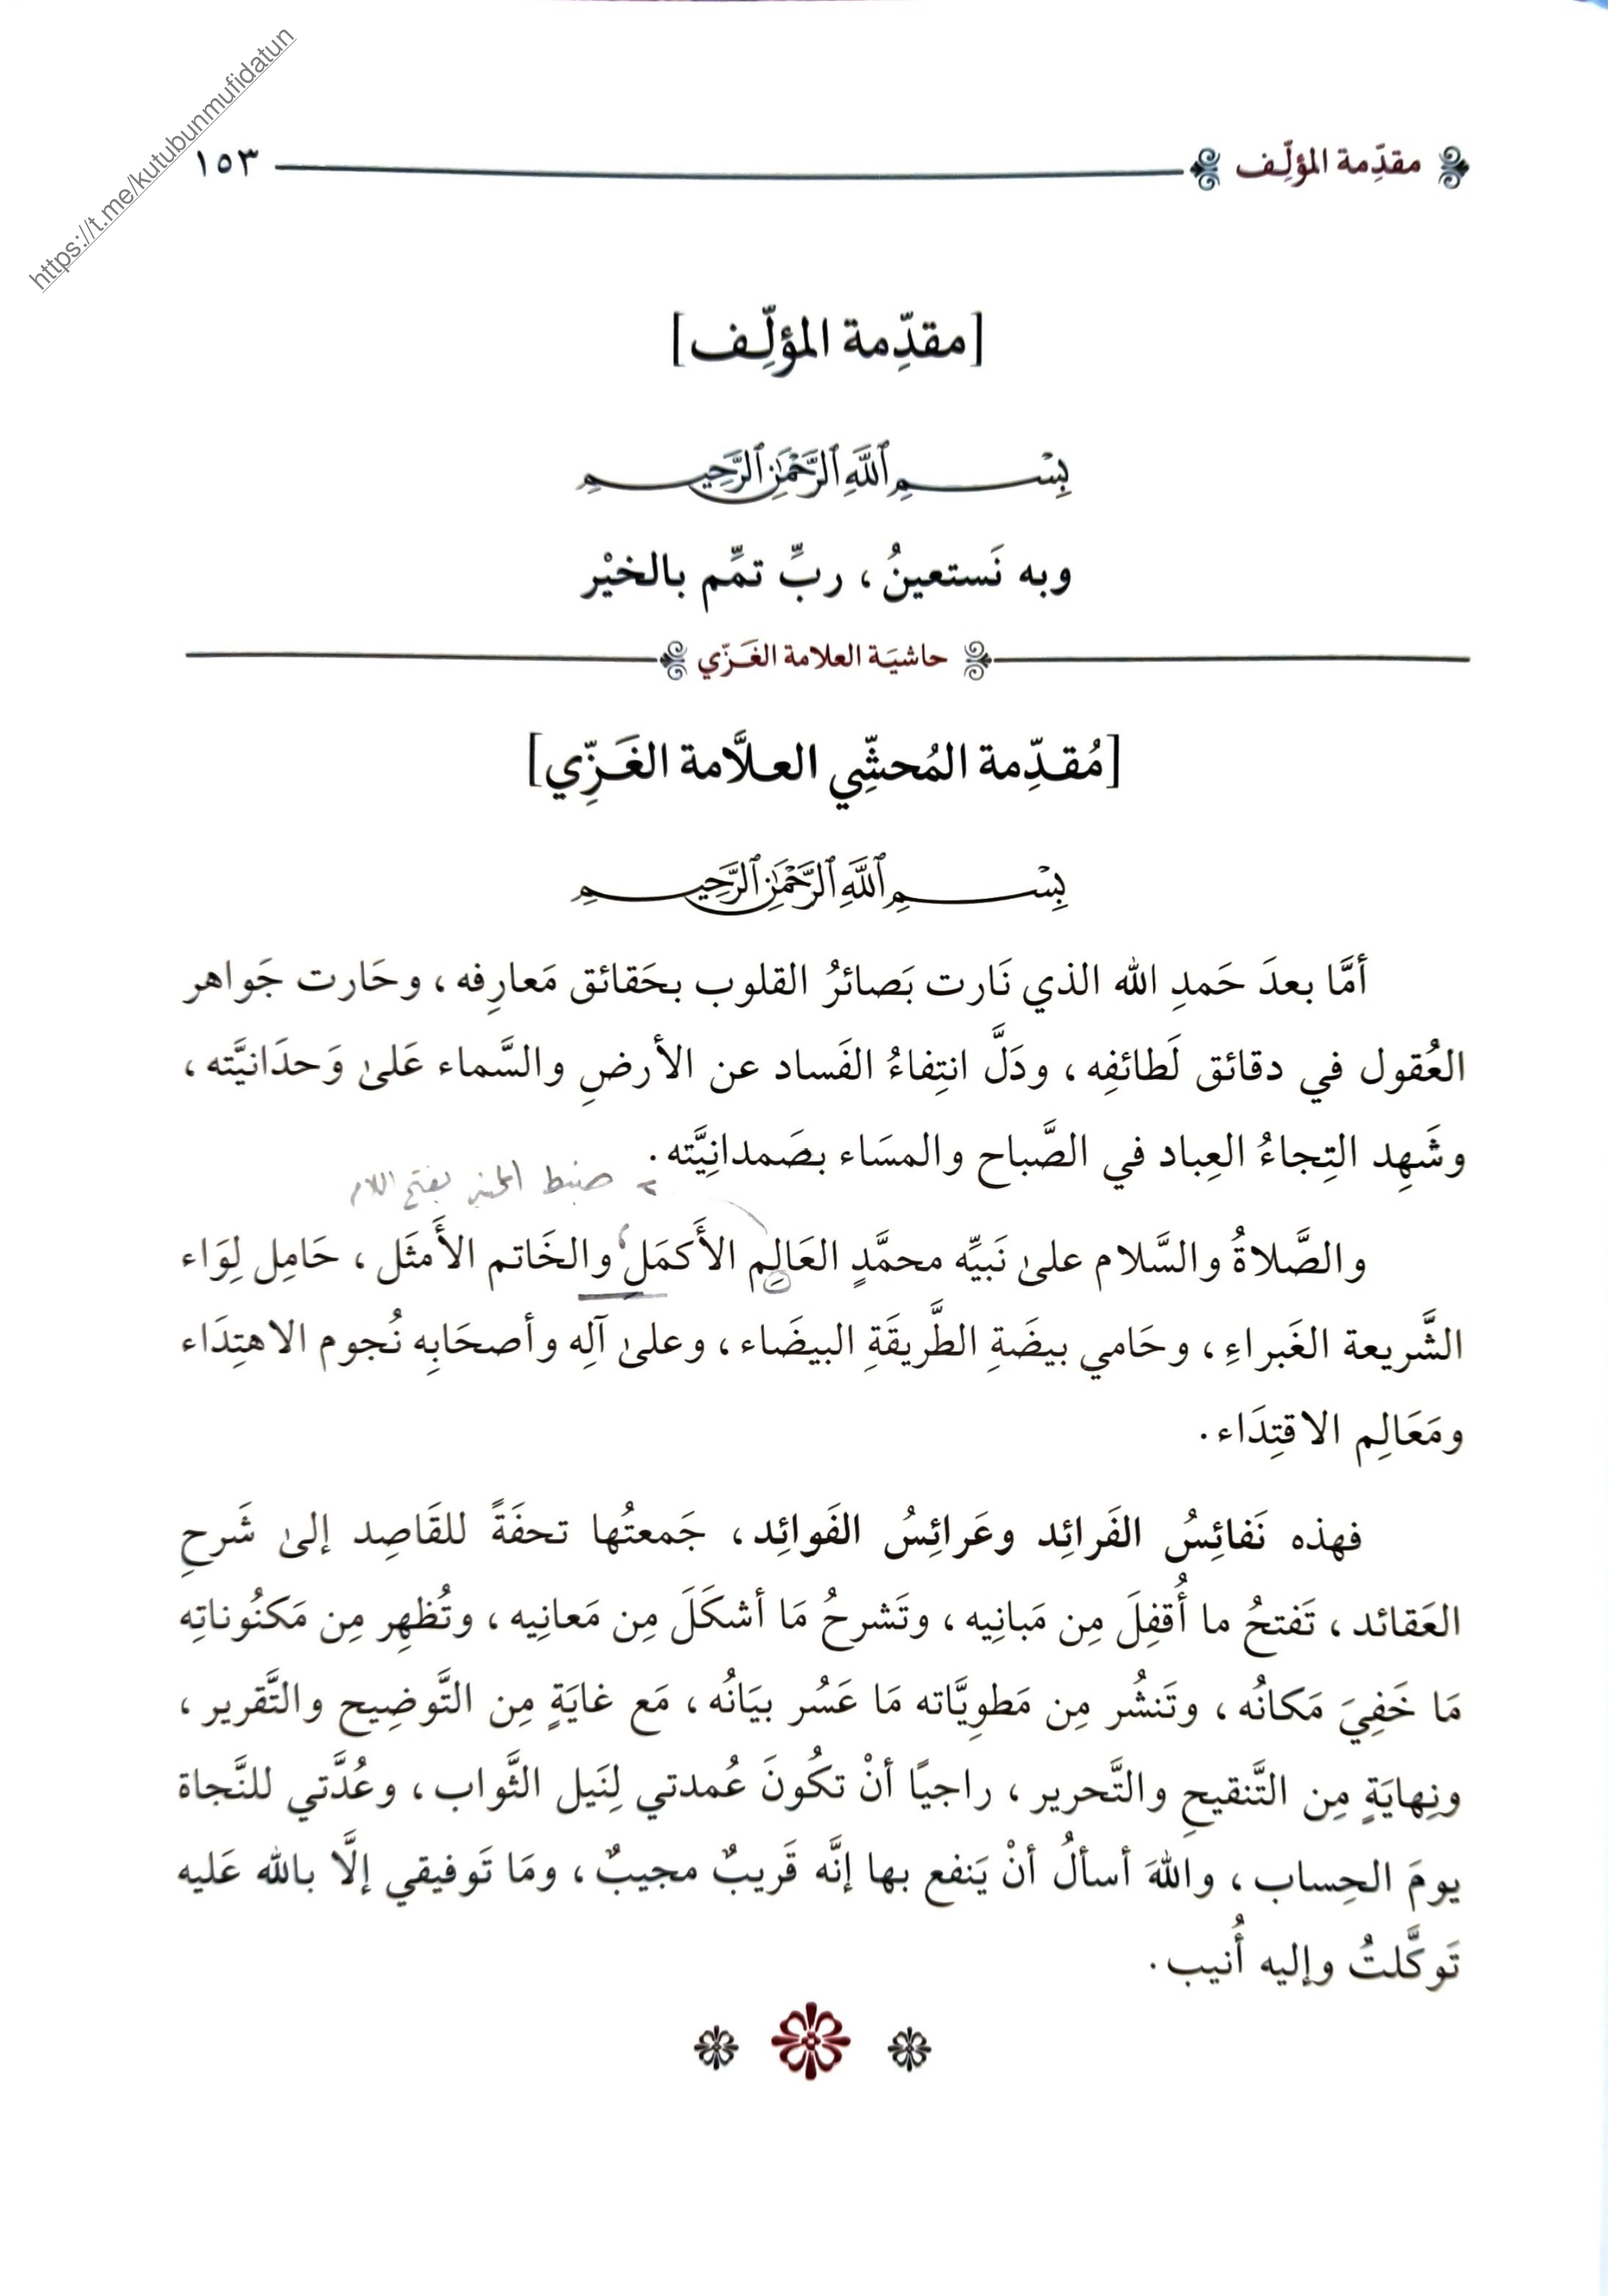 https://t.me/kutubunmufidatun
مقدِّمة المؤلِّف ١٥٣
[مقدِّمة المؤلِّف]
بِسْمِ ٱللَّهِ ٱلرَّحْمَٰنِ ٱلرَّحِيمِ
وبه نَستعينُ، ربِّ تمِّم بالخيْر
حاشيَة العلامة الغَزّي
[مُقدِّمة المُحشِّي العلاَّمة الغَزِّي]
بِسْمِ ٱللَّهِ ٱلرَّحْمَٰنِ ٱلرَّحِيمِ
أمَّا بعدَ حَمدِ الله الذي نَارت بَصائرُ القلوب بحَقائق مَعارِفه، وحَارت جَواهر
العُقول في دقائق لَطائفِه، ودَلَّ انتِفاءُ الفَساد عن الأرضِ والسَّماء عَلىٰ وَحدَانيَّته،
وشَهِد التِجاءُ العِباد في الصَّباح والمسَاء بصَمدانِيَّته.
ضبط المحشي بفتح اللام
والصَّلاةُ والسَّلام علىٰ نَبيِّه محمَّدٍ العَالِم الأَكمَلِ والخَاتم الأَمثَل، حَامِل لِوَاء
الشَّريعة الغَبراءِ، وحَامي بيضَةِ الطَّريقَةِ البيضَاء، وعلىٰ آلِه وأصحَابِه نُجوم الاهتِدَاء
ومَعَالِم الاقتِدَاء.
فهذه نَفائِسُ الفَرائِد وعَرائِسُ الفَوائِد، جَمعتُها تحفَةً للقَاصِد إلىٰ شَرحِ
العَقائد، تَفتحُ ما أُقفِلَ مِن مَبانِيه، وتَشرحُ مَا أشكَلَ مِن مَعانِيه، وتُظهِر مِن مَكنُوناتِه
مَا خَفِيَ مَكانُه، وتَنشُر مِن مَطوِيَّاته مَا عَسُر بيَانُه، مَع غايَةٍ مِن التَّوضِيح والتَّقرير،
ونِهايَةٍ مِن التَّنقيحِ والتَّحرير، راجيًا أنْ تكُونَ عُمدتي لِنَيل الثَّواب، وعُدَّتي للنَّجاة
يومَ الحِساب، واللهَ أسألُ أنْ يَنفع بها إنَّه قَريبٌ مجيبٌ، ومَا تَوفيقي إلَّا بالله عَليه
تَوكَّلتُ وإليه أُنيب.